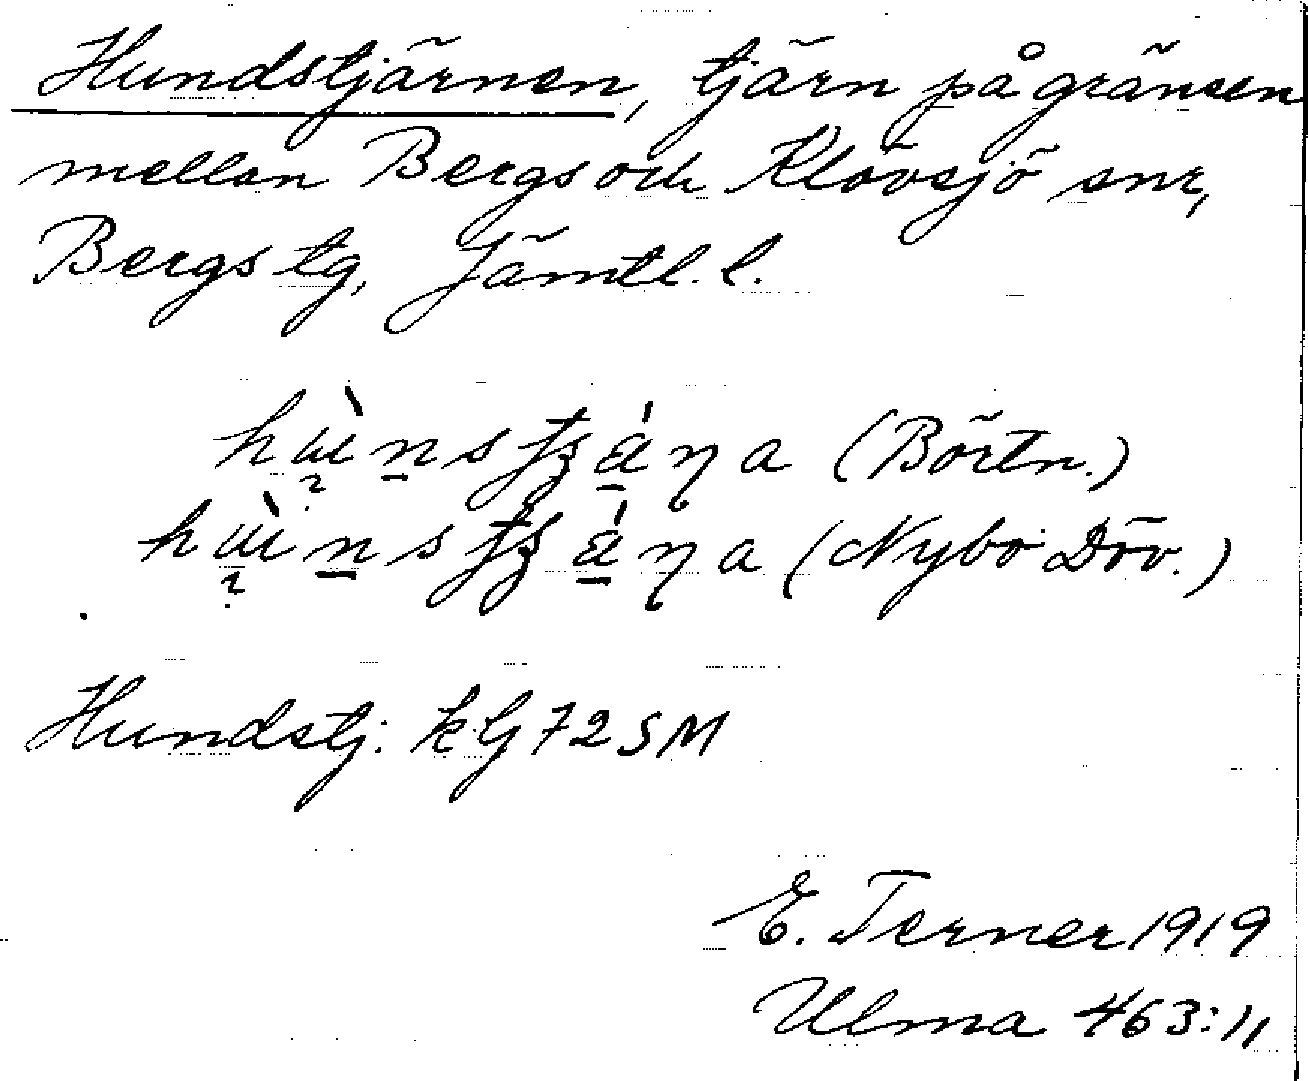 Hundstjärnen, tjärn på gränsen
mellan Bergs och Klövsjö snr,
Bergs tg, Jämtl. l.
(Börtn.)
(Nybo Döv.)
Hundstj: kG 72 SM
E. Terner 1919
Ulma 463:11